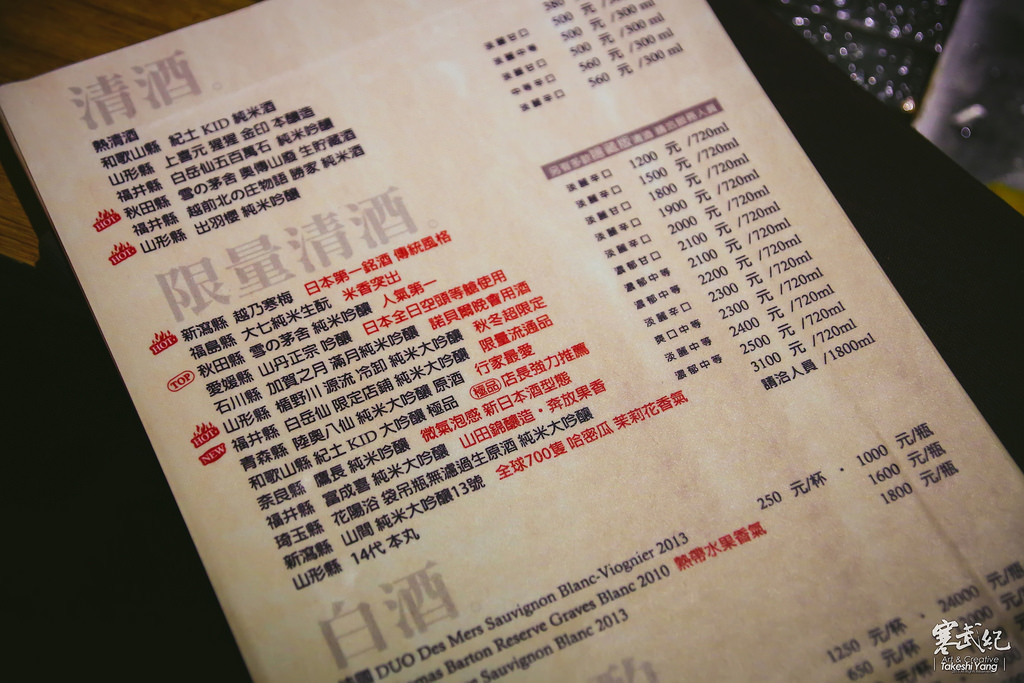 清酒。
熱清酒 380
和歌山縣 紀土 KID 純米酒 淡麗甘口 500 元 /300 ml
山形縣 上喜元 猩猩 金印 本釀造 淡麗中等 500 元 /300 ml
福井縣 白岳仙五百萬石 純米吟釀 淡麗甘口 500 元 /300 ml
HOT 秋田縣 雪の茅舍 奧傳山廢 生貯藏酒 中等辛口 560 元 /300 ml
福井縣 越前北の庄物語 勝家 純米酒 淡麗辛口 560 元 /300 ml
HOT 山形縣 出羽櫻 純米吟釀
限量清酒。
HOT 新瀉縣 越乃寒梅 日本第一銘酒 傳統風格 淡麗辛口 1200 元 /720ml
福島縣 大七純米生酛 米香突出 淡麗辛口 1500 元 /720ml
TOP 秋田縣 雪の茅舍 純米吟釀 人氣第一 淡麗甘口 1800 元 /720ml
愛媛縣 山丹正宗 吟釀 日本全日空頭等艙使用 淡麗辛口 1900 元 /720ml
石川縣 加賀之月 滿月純米吟釀 諾貝爾晚會用酒 濃郁甘口 2000 元 /720ml
HOT 山形縣 楯野川 源流 冷卸 純米大吟釀 秋冬超限定 濃郁中等 2100 元 /720ml
NEW 福井縣 白岳仙 限定店鋪 純米大吟釀 限量流通品 濃郁中等 2200 元 /720ml
青森縣 陸奧八仙 純米大吟釀 原酒 行家最愛 淡麗辛口 2300 元 /720ml
和歌山縣 紀土 KID 大吟釀 極品 極品 店長強力推薦 爽口中等 2300 元 /720ml
奈良縣 鷹長 純米吟釀 微氣泡感 新日本酒型態 淡麗中等 2400 元 /720ml
福井縣 富成喜 純米大吟釀 山田錦釀造・奔放果香 濃郁中等 2500 元 /720ml
琦玉縣 花陽浴 袋吊瓶無濾過生原酒 純米大吟釀 3100 元 /720ml
新瀉縣 山間 純米大吟釀13號 全球700隻 哈密瓜 茉莉花香氣 請洽人員 /1800ml
山形縣 14代 本丸
白酒。
DUO Des Mers Sauvignon Blanc-Viognier 2013 250 元/杯・1000 元/瓶
Barton Reserve Graves Blanc 2010 熱帶水果香氣 1600 元/瓶
Sauvignon Blanc 2013 1800 元/瓶
1250 元/杯・24000 元/瓶
650 元/杯
寒武紀
Art & Creative
TakeshiYang